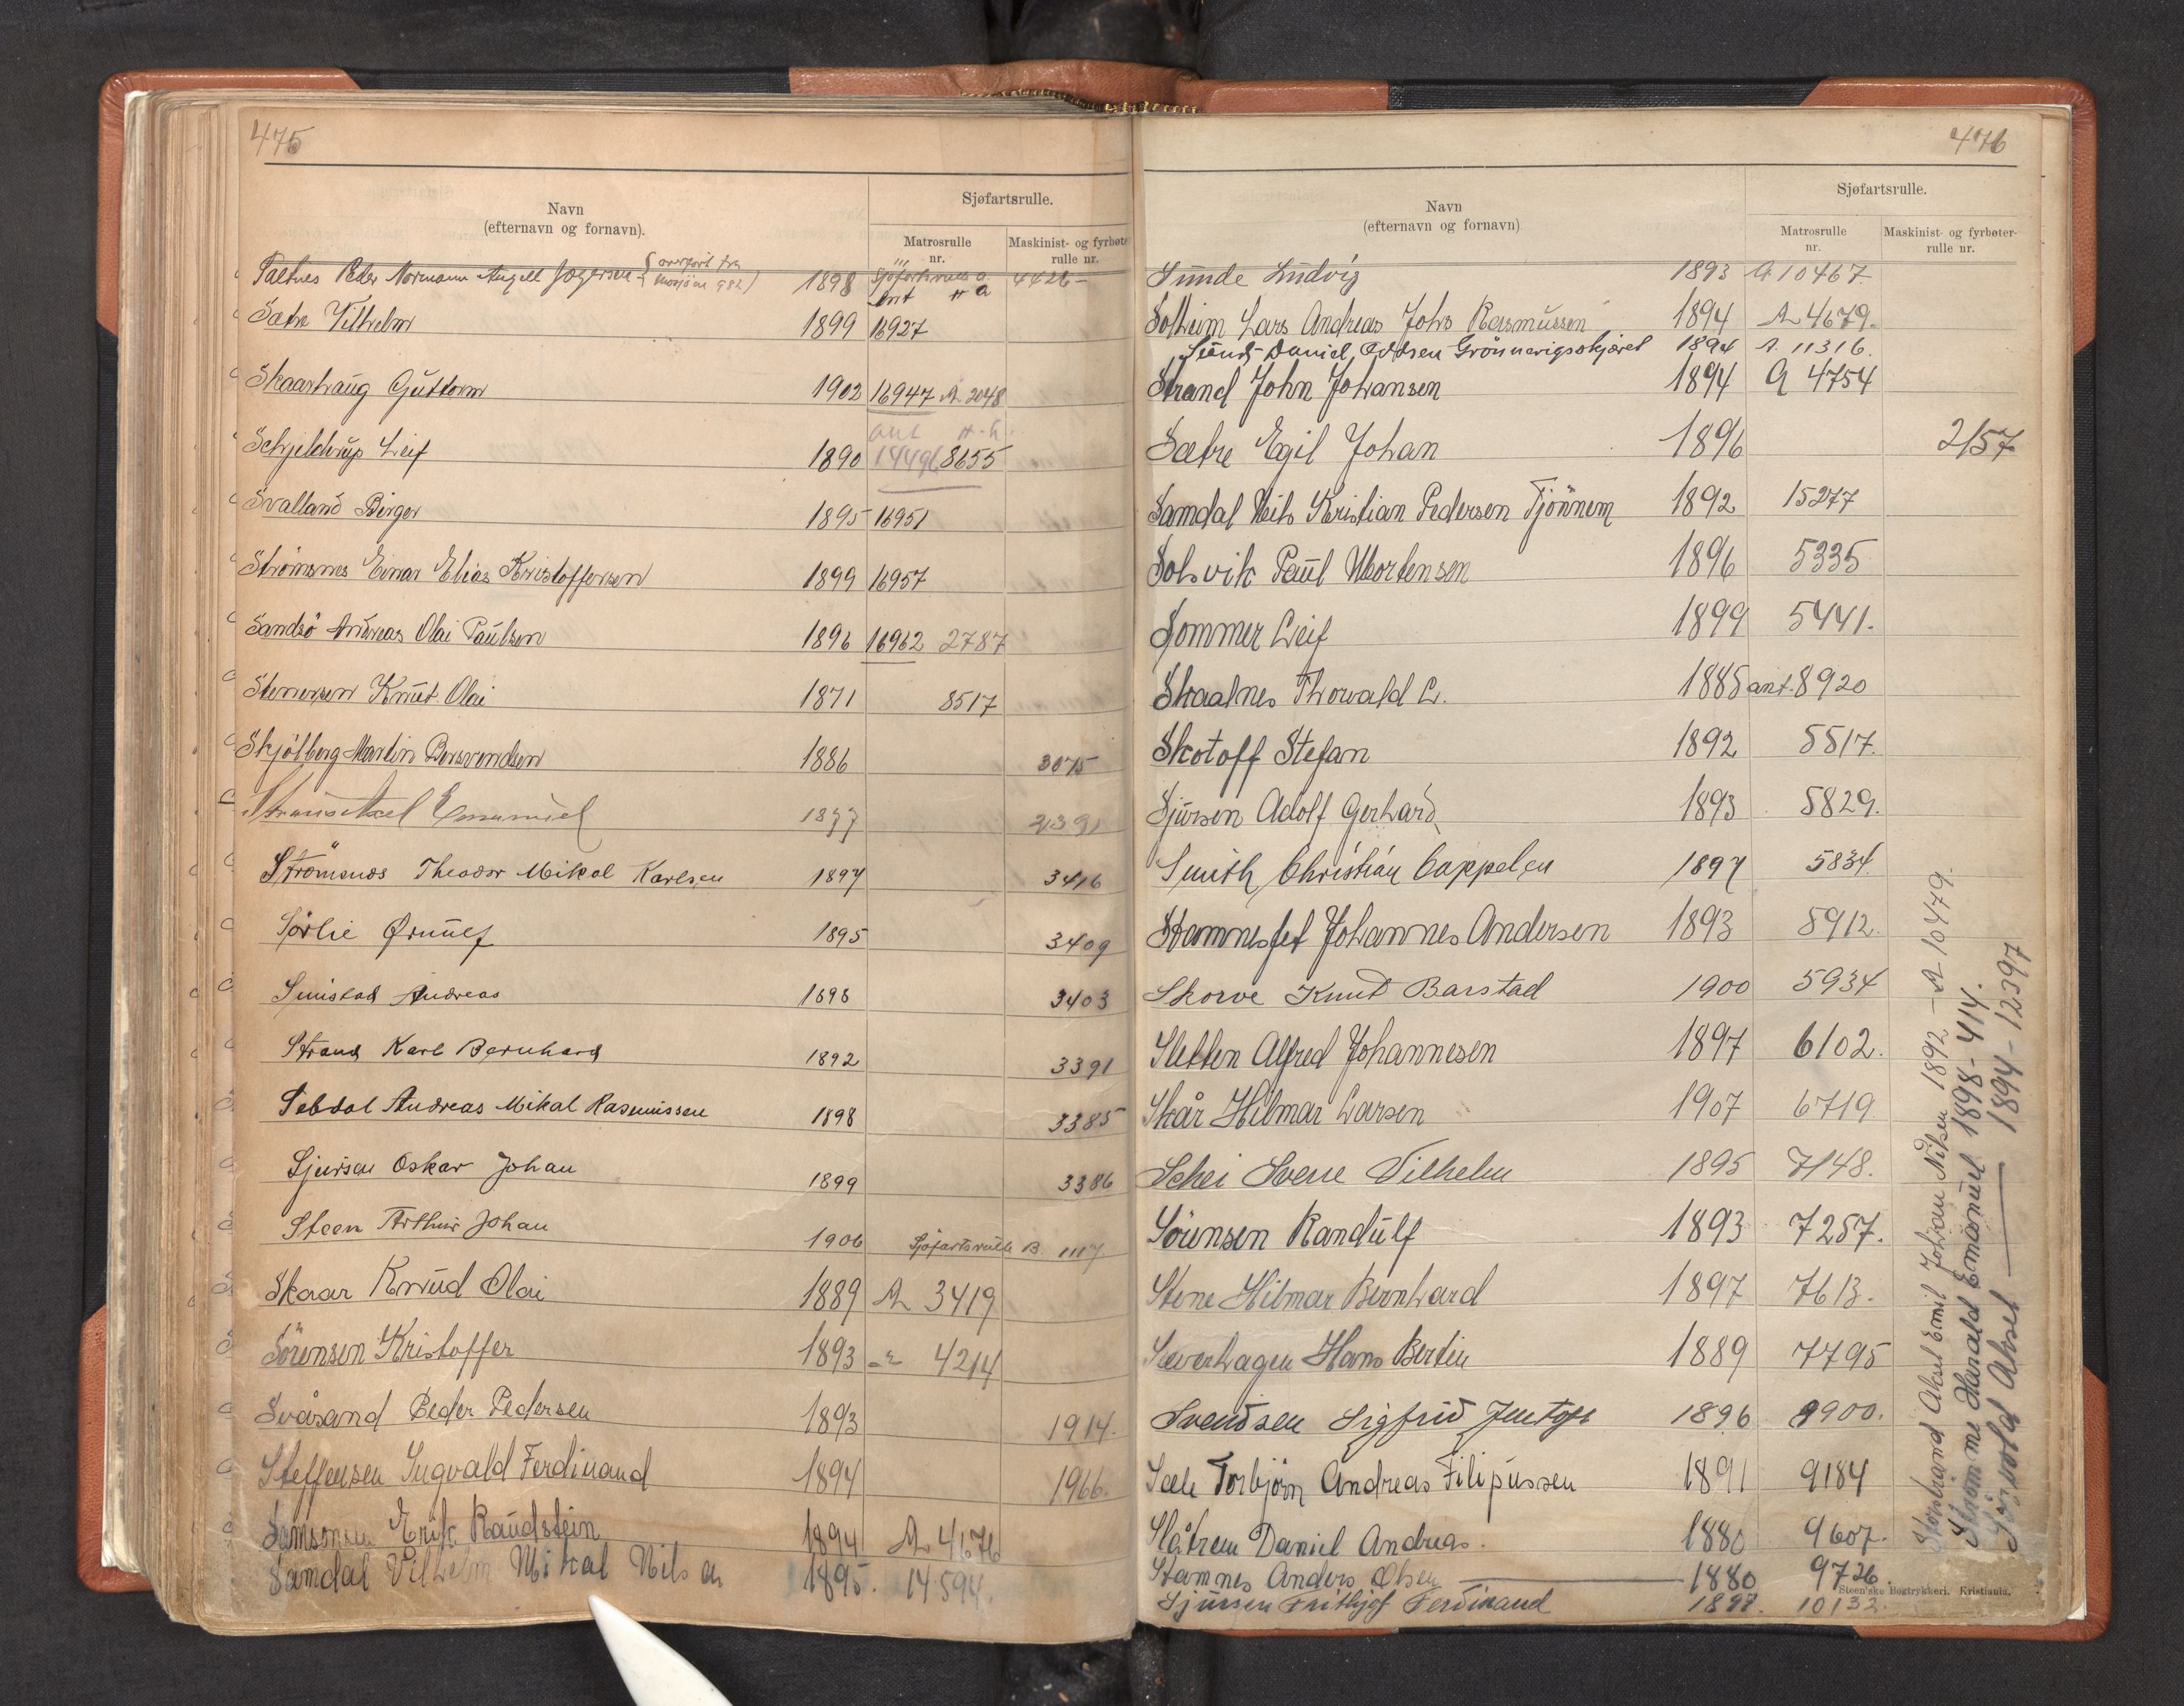 475
Navn
(efternavn og fornavn).
Sjøfartsrulle.
Matrosrulle nr.
Maskinist- og fyrbøter- rulle nr.
Peder Normann Angell Jægersen (overført fra Mosjøen 982) 1898 Sjøfartsrulle a 4426 -
Sætre Vilhelm 1899 16927
Skaarhaug Guttorm 1902 16947 A 2048
Schjelderup Leif 1890 14496 8655
Svalland Birger 1895 16951
Strömsnes Einar Elias Kristoffersen 1899 16957
Sandsö Andreas Olai Paulsen 1896 16962 2787
Stenersen Knut Olai 1871 8517
Skjölberg Martin Bersvendsen 1886 3075
Emanuel 2391
Strömsnes Theodor Mikal Karlsen 1897 3416
Sörlie Ørnulf 1895 3409
Smistad Andreas 1898 3403
Strand Karl Bernhard 1892 3391
Sebdal Andreas Mikal Rasmussen 1898 3385
Sjursen Oskar Johan 1899 3386
Steen Arthur Johan 1906 Sjøfartsrulle B. 1117
Skaar Knud Olai 1889 A 3419
Sörensen Kristoffer 1893 -"- 4214
Svåsand Peder Pedersen 1893 1914.
Steffensen Ingvald Ferdinand 1894 1966.
Samsonsen Erik Raudstein 1894 A 4676
Samdal Vilhelm Mikal Nilsen 1895. 14594.
476
Navn
(efternavn og fornavn)
Sjøfartsrulle.
Matrosrulle nr.
Maskinist- og fyrbøter- rulle nr.
Sunde Ludvig 1893 A 10467.
Solheim Lars Andreas Johs Rasmussen 1894 A 4679.
Sund Daniel Oddsen Grönnevigsskjæret 1894 A. 11316.
Strand John Johansen 1894 A 4754
Sætre Egil Johan 1896 2157
Samdal Nils Kristian Pedersen Tjönnem 1892 15277
Solsvik Paul Mortensen 1896 5335
Sommer Leif 1899 5441.
Skaalnes Thorvald L. 1885 ant. 8920
Skotoff Stefan 1892 5517.
Sjursen Adolf Gerhard 1893 5829.
Smith Christian Cappelen 1897 5834.
Stamnesfet Johannes Andersen 1893 5912.
Skorve Knut Barstad 1900 5934
Sletten Alfred Johannesen 1897 6102.
Skår Hilmar Larsen 1907 6719
Schei Sverre Vilhelm 1895 7148.
Sörensen Randulf 1893 7257.
Stene Hilmar Bernhard 1897 7613.
Sæverhagen Hans Bertin 1889 7795
Svendsen Sigfrid Jentoft 1896 8900.
Sæle Torbjörn Andreas Filipussen 1891 9184
Slåtrem Daniel Andreas. 1880 9607.
Stamnes Anders Olsen 1880 9726.
Sjursen Frithjof Ferdinand 1897. 10132.
Steen'ske Bogtrykkeri. Kristiania.
Storstrand Aksel Emil Johan Nilsen 1892 - A 10479.
Strömme Harald Emanuel 1898 - 414.
Sörvold Aksel 1894 - 12397